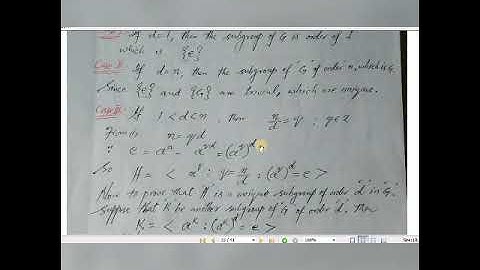 If d=1, then the subgroup of G is order of 1
which is {e}
Case II If d=n, then the subgroup of "G" of order n, which is G.
Since {e} and {G} are trivial, which are unique.
Case III: If 1 < d < n, then n/d = q ; q∈Z
n = qd
∵ e = aⁿ = a^qd = (a^q)^d
So H = < a^q : q = n/d ; (a^q)^d = e >
Now to prove that H is a unique subgroup of order "d" in "G".
Suppose that K be another subgroup of "G" of order "d", Then
K = < a^k : (a^k)^d = e >
100%